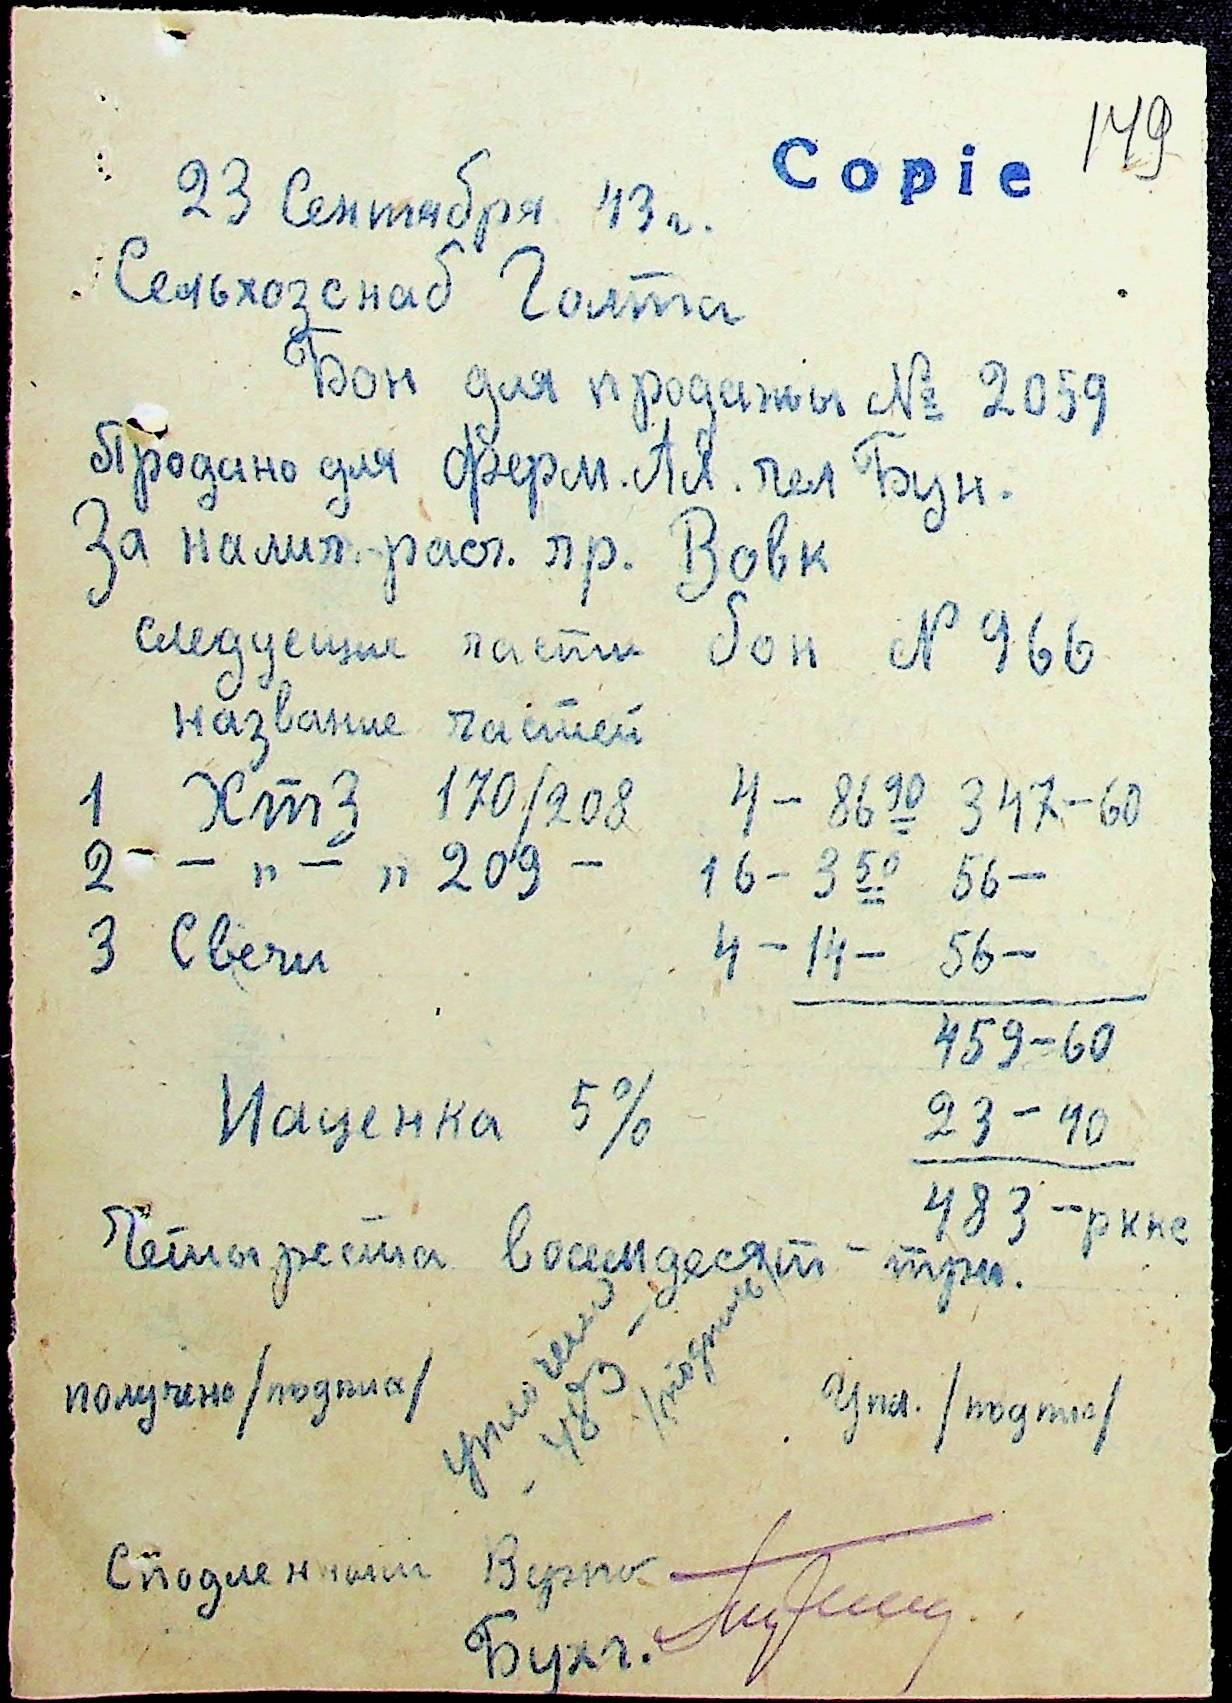 149
Copie
23 Сентября 43 г.
Сельхозснаб Голта
Бон для продажы № 2059
Продано для ферм. АЯ. чел Бун.
За налич. расч. пр. Вовк
следуещие части бон № 966
название частей
1 ХТЗ 170/208 4 – 86 90 347–60
2 – – " – " 209 – 16 – 3 50 56 –
3 Свечи 4 – 14 – 56 –
459–60
Наценка 5% 23 – 40
483 – ркнс
Четыреста восемдесят – три.
получено /подписа/ Упл. /подпис/
уплочено
– 483 –
/подпись/
С подленным Верно
Бухг.